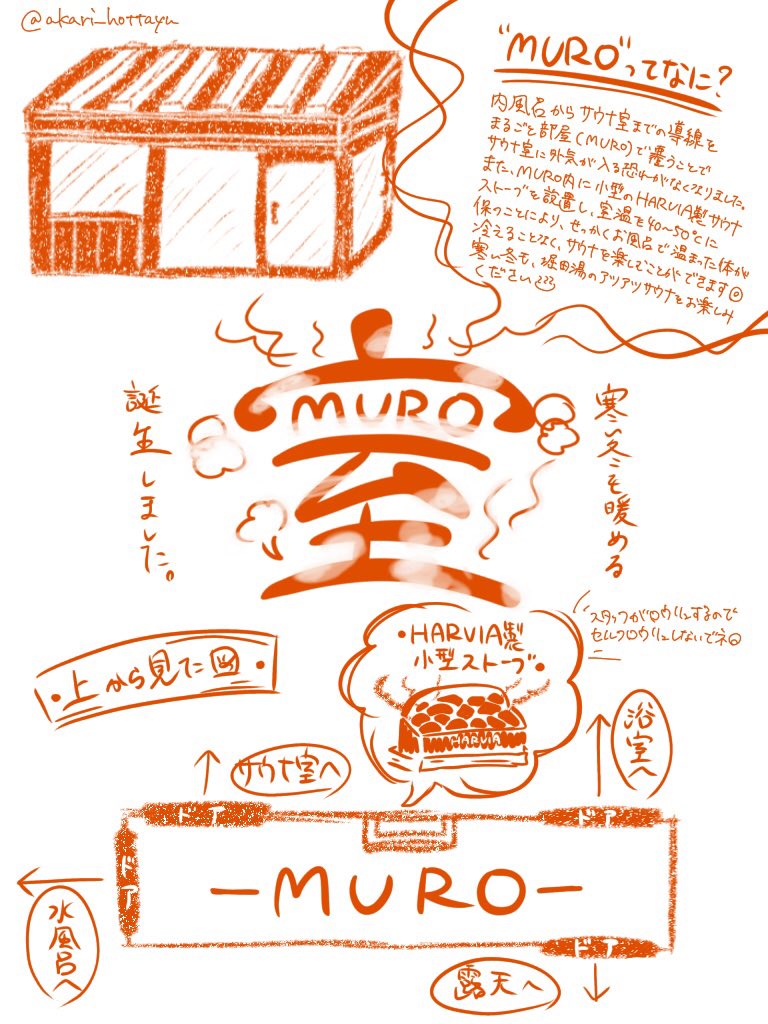 @akari_hottayu
"MURO"ってなに?
内風呂からサウナ室までの導線を
まるごと部屋(MURO)で覆うことで
サウナ室に外気が入る恐れがなくなりました。
また、MURO内に小型のHARVIA製サウナ
ストーブを設置し、室温を40~50℃に
保つことにより、せっかくお風呂で温まった体が
冷えることなく、サウナを楽しむことができます
寒い冬も、堀田湯のアツアツサウナをお楽しみ
ください
室
MURO
寒い冬も暖める
誕生しました。
スタッフがロウリュするので
セルフロウリュしないでネ
・HARVIA製
小型ストーブ・
HARVIA
・上から見た図・
サウナ室へ
浴室へ
ドア
ドア
ドア
-MURO-
水風呂へ
ドア
露天へ